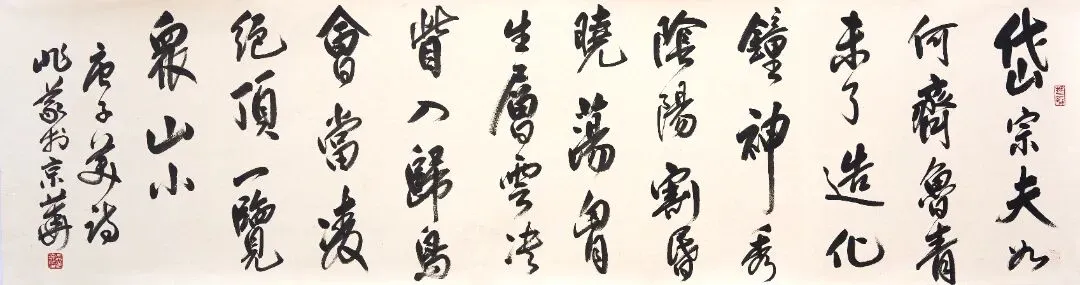 岱宗夫如
何齊魯青
未了造化
鐘神秀
陰陽割昏
曉蕩胷
生層雲决
眥入歸鳥
會當凌
絕頂一覽
眾山小
唐子美詩
於京華